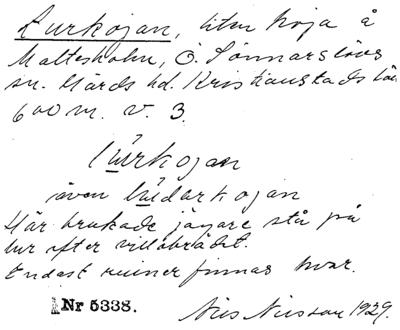 Lurkojan, liten koja å
Maltesholm, Ö. Sönnarslövs
sn. Gärds hd. Kristianstads län
600 m. V. 3.
lurkojan
även
Här brukade jägare stå på
lur efter villebrådet.
Endast ruiner finnas kvar.
Nr 5338.
Nils Nilsson 1929.